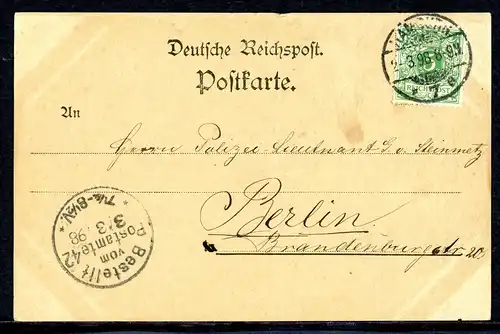 Deutsche Reichspost.
Postkarte.
An
Herrn Polizei-Lieutnant G. v. Steinmetz
Berlin
Brandenburgstr 20
Bestellt
vom
Postamte 42
3/3.98
7½-8¼V.
3.98